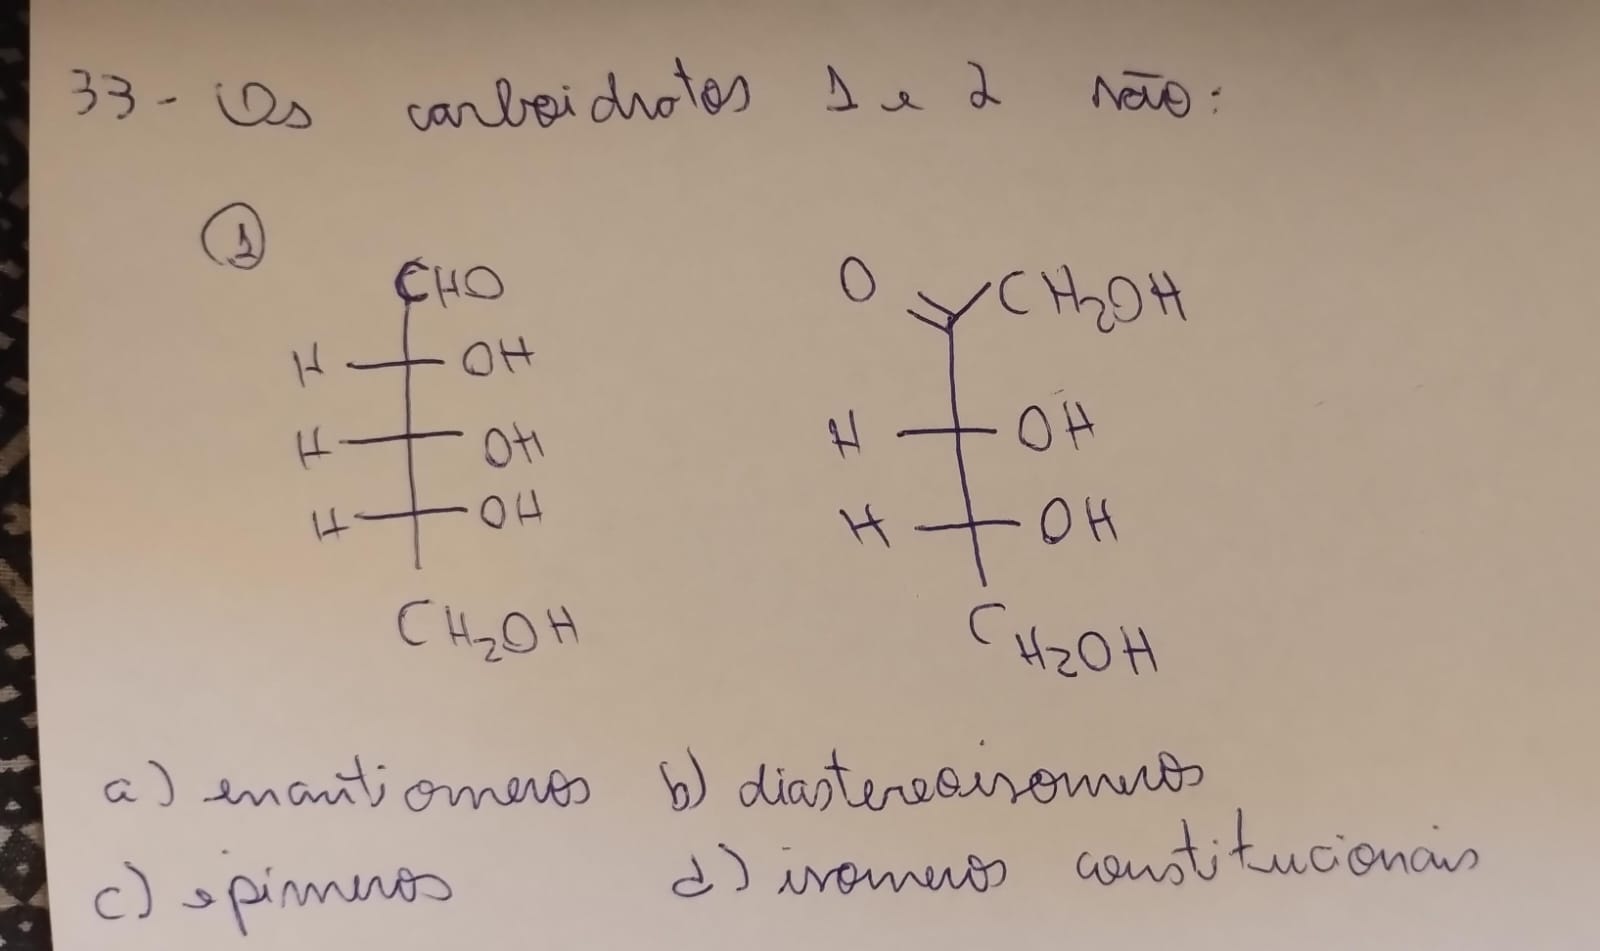 33- Os carboidratos 1 e 2 são:
1
CHO
O CH2OH
H OH
H OH
H OH
H OH
H OH
CH2OH
CH2OH
a) enantiomeros b) diastereoisomeros
c) epimeros d) isomeros constitucionais